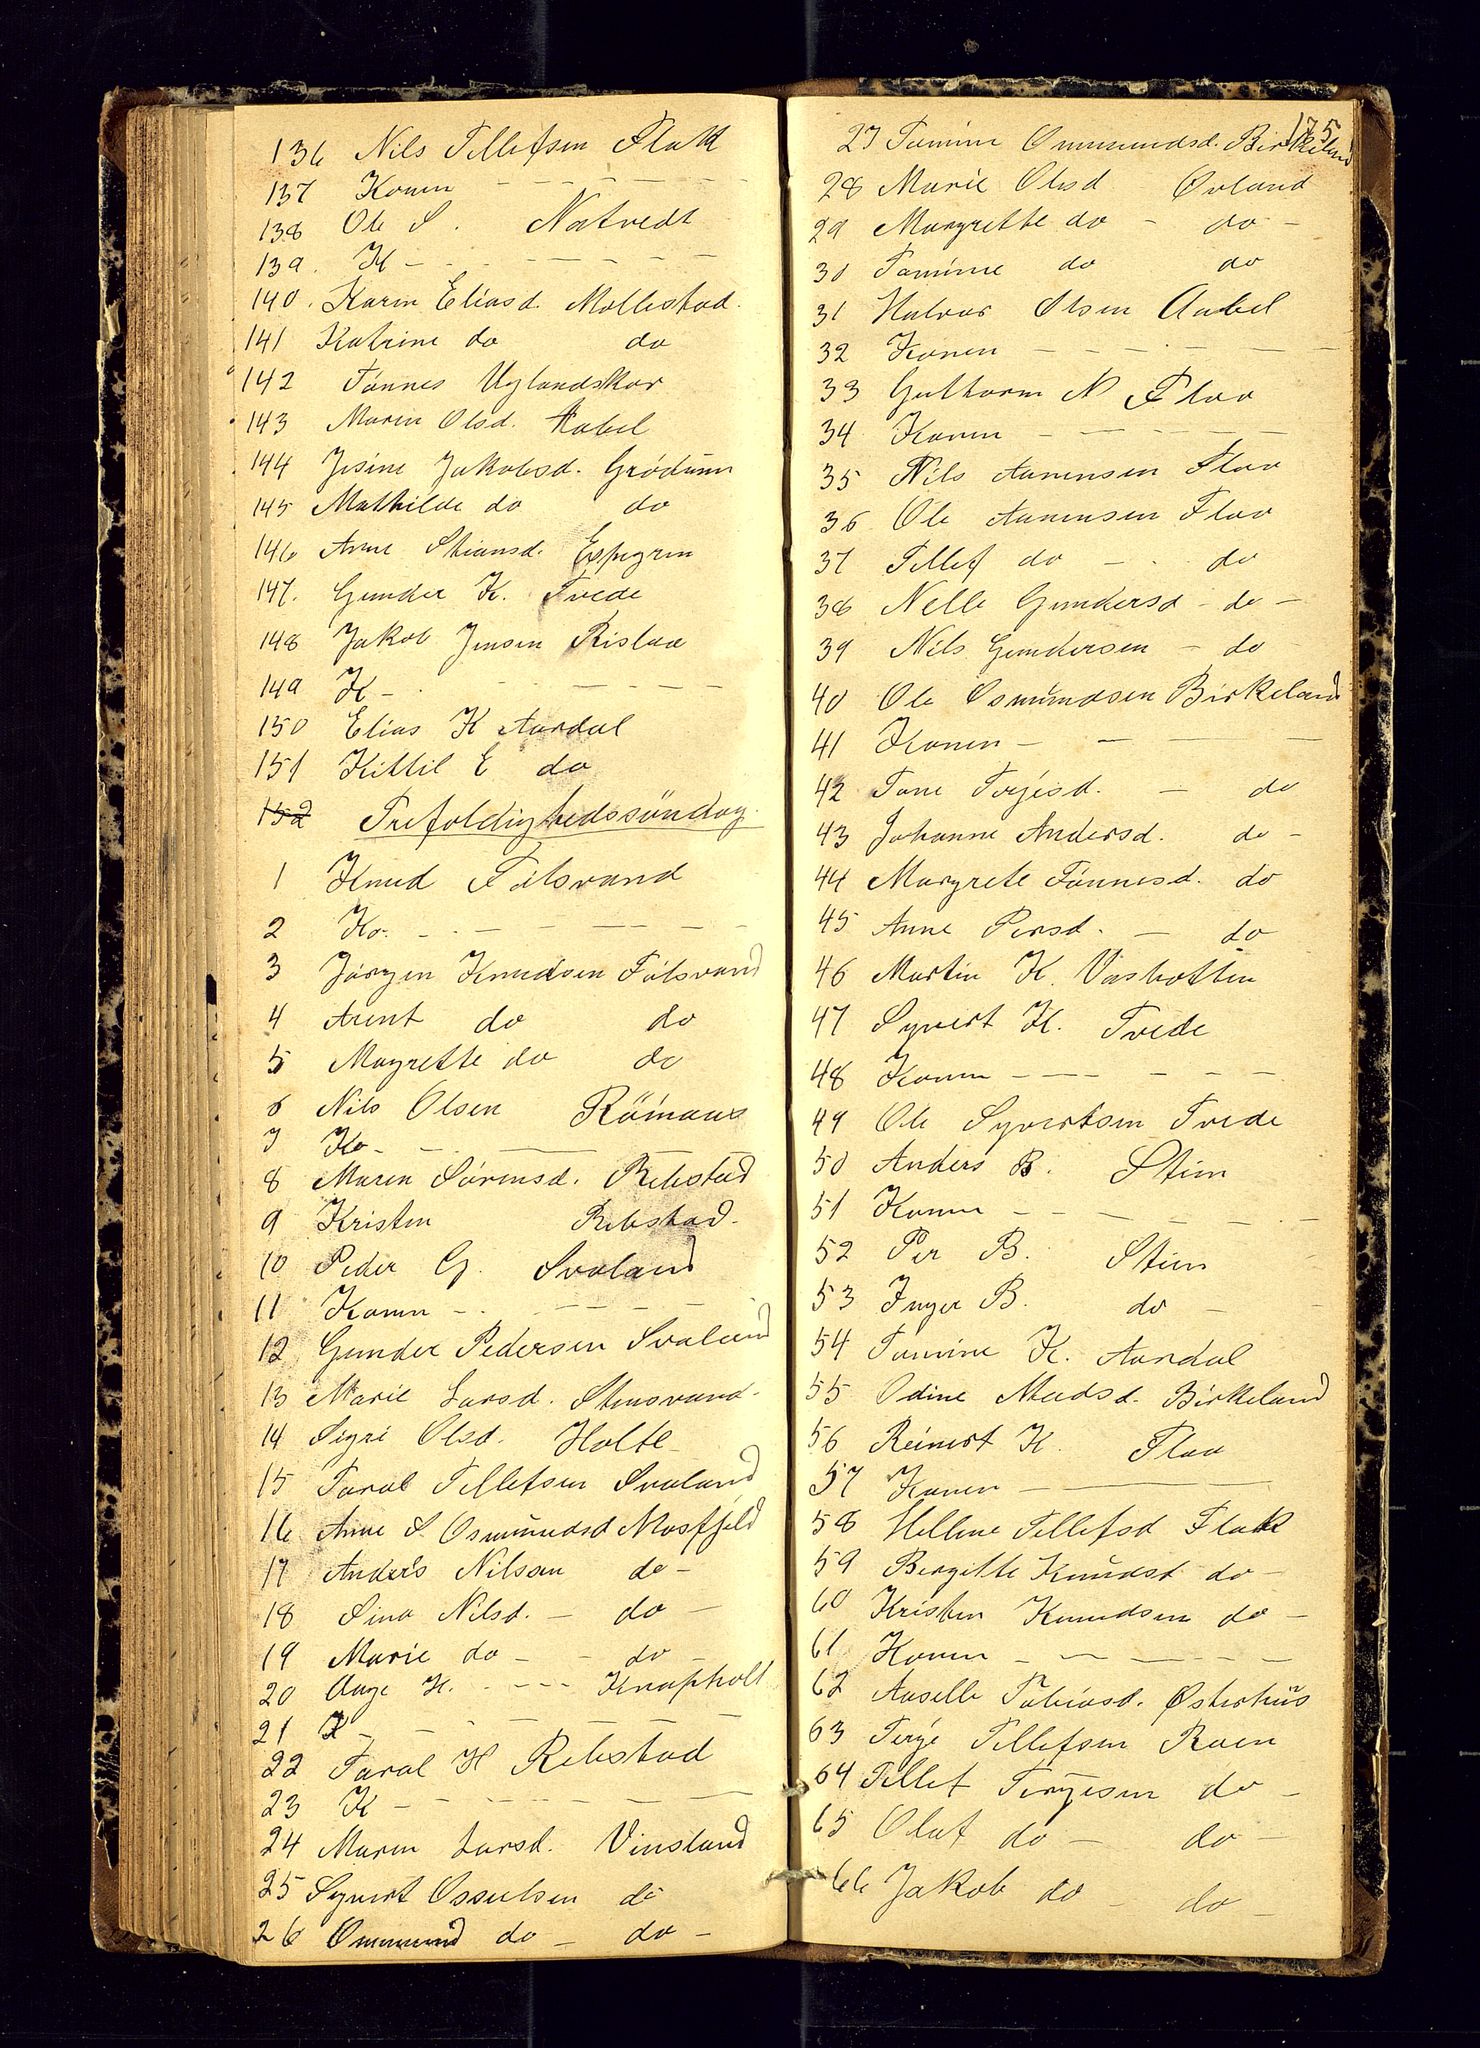 136 Nils Tellefsen Flak
137 Konen - - - - -
138 Ole S. Natvedt
139. K - - - - - - -
140. Karen Eliasd. Mollestad.
141 Katrine do do
142 Tønnes Uglandskar
143 Maren Olsd. Aabel
144 Jesine Jakobsd. Grødum
145 Mathilde do do
146 Anne Stiansd. Espegren
147. Gunder K. Tvede
148 Jakob Jensen Rislaa
149 K - - - - - -
150 Elias K Aardal
151 Kittil E do
152 Trefoldighedssöndag.
1 Knud Følsvand
2 Ko. - - - - - -
3 Jørgen Knudsen Følsvand
4 Arent do do
5 Magrette do do
6 Nils Olsen Römaas
7 Ko - - - -
8 Maren Sørensd. Rebestad
9 Kristen Rebestad.
10 Peder G. Svaland
11 Konen - - - - -
12 Gunder Pedersen Svaland
13 Marie Larsd. Stensvand.
14 Sigri Olsd. Holte
15 Taral Tellefsen Svaland
16 Anne S. Osmundsd Mosfjeld
17 Anders Nilsen do -
18 Sina Nilsd. - do -
19 Marie do - - do -
20 Aage K. - - - - Knapholt
21 K - - - - - -
22 Taral H Rebestad
23 K - - - - - - -
24 Maren Larsd. Vinsland
25 Syvert Osuldsen do
26 Ommund do - do -
175
27 Tomine Ommundsd. Birkeland
28 Marie Olsd Øvland
29 Margrette do - do -
30 Tomine do do
31 Halvor Olsen Aabel
32 Konen - - - - - - -
33 Guthorm N Flaa
34 Konen - - - - - -
35 Nils Aanensen Flaa
36 Ole Aanensen Flaa
37 Tellef do - - do
38 Nelle Gundersd - do -
39 Nils Gundersen - do
40 Ole Osmundsen Birkeland
41 Konen - - - -
42 Tone Terjesd. - do
43 Johanne Andersd. do -
44 Margrete Tønnesd. do
45 Anne Persd. - do
46 Martin K. Vasbotten
47 Syvert K. Tvede
48 Konen - - - - - -
49 Ole Syvertsen Tvede
50 Anders B. Steen
51 Konen - - - - - - -
52 Per B. Steen
53 Inger B. do - -
54 Tomine K. Aardal
55 Odine Madsd. Birkeland
56 Reinert K. Flaa
57 Konen -
58 Hellene Tellefsd Flak
59 Bergitte Knudsd do -
60 Kristen Knudsen do -
61 Konen - - - - - -
62 Aaselle Tobiasd. Østerhus
63 Terje Tellefsen Raen
64 Tellef Terjesen do -
65 Olaf do - do -
66 Jakob do - do -